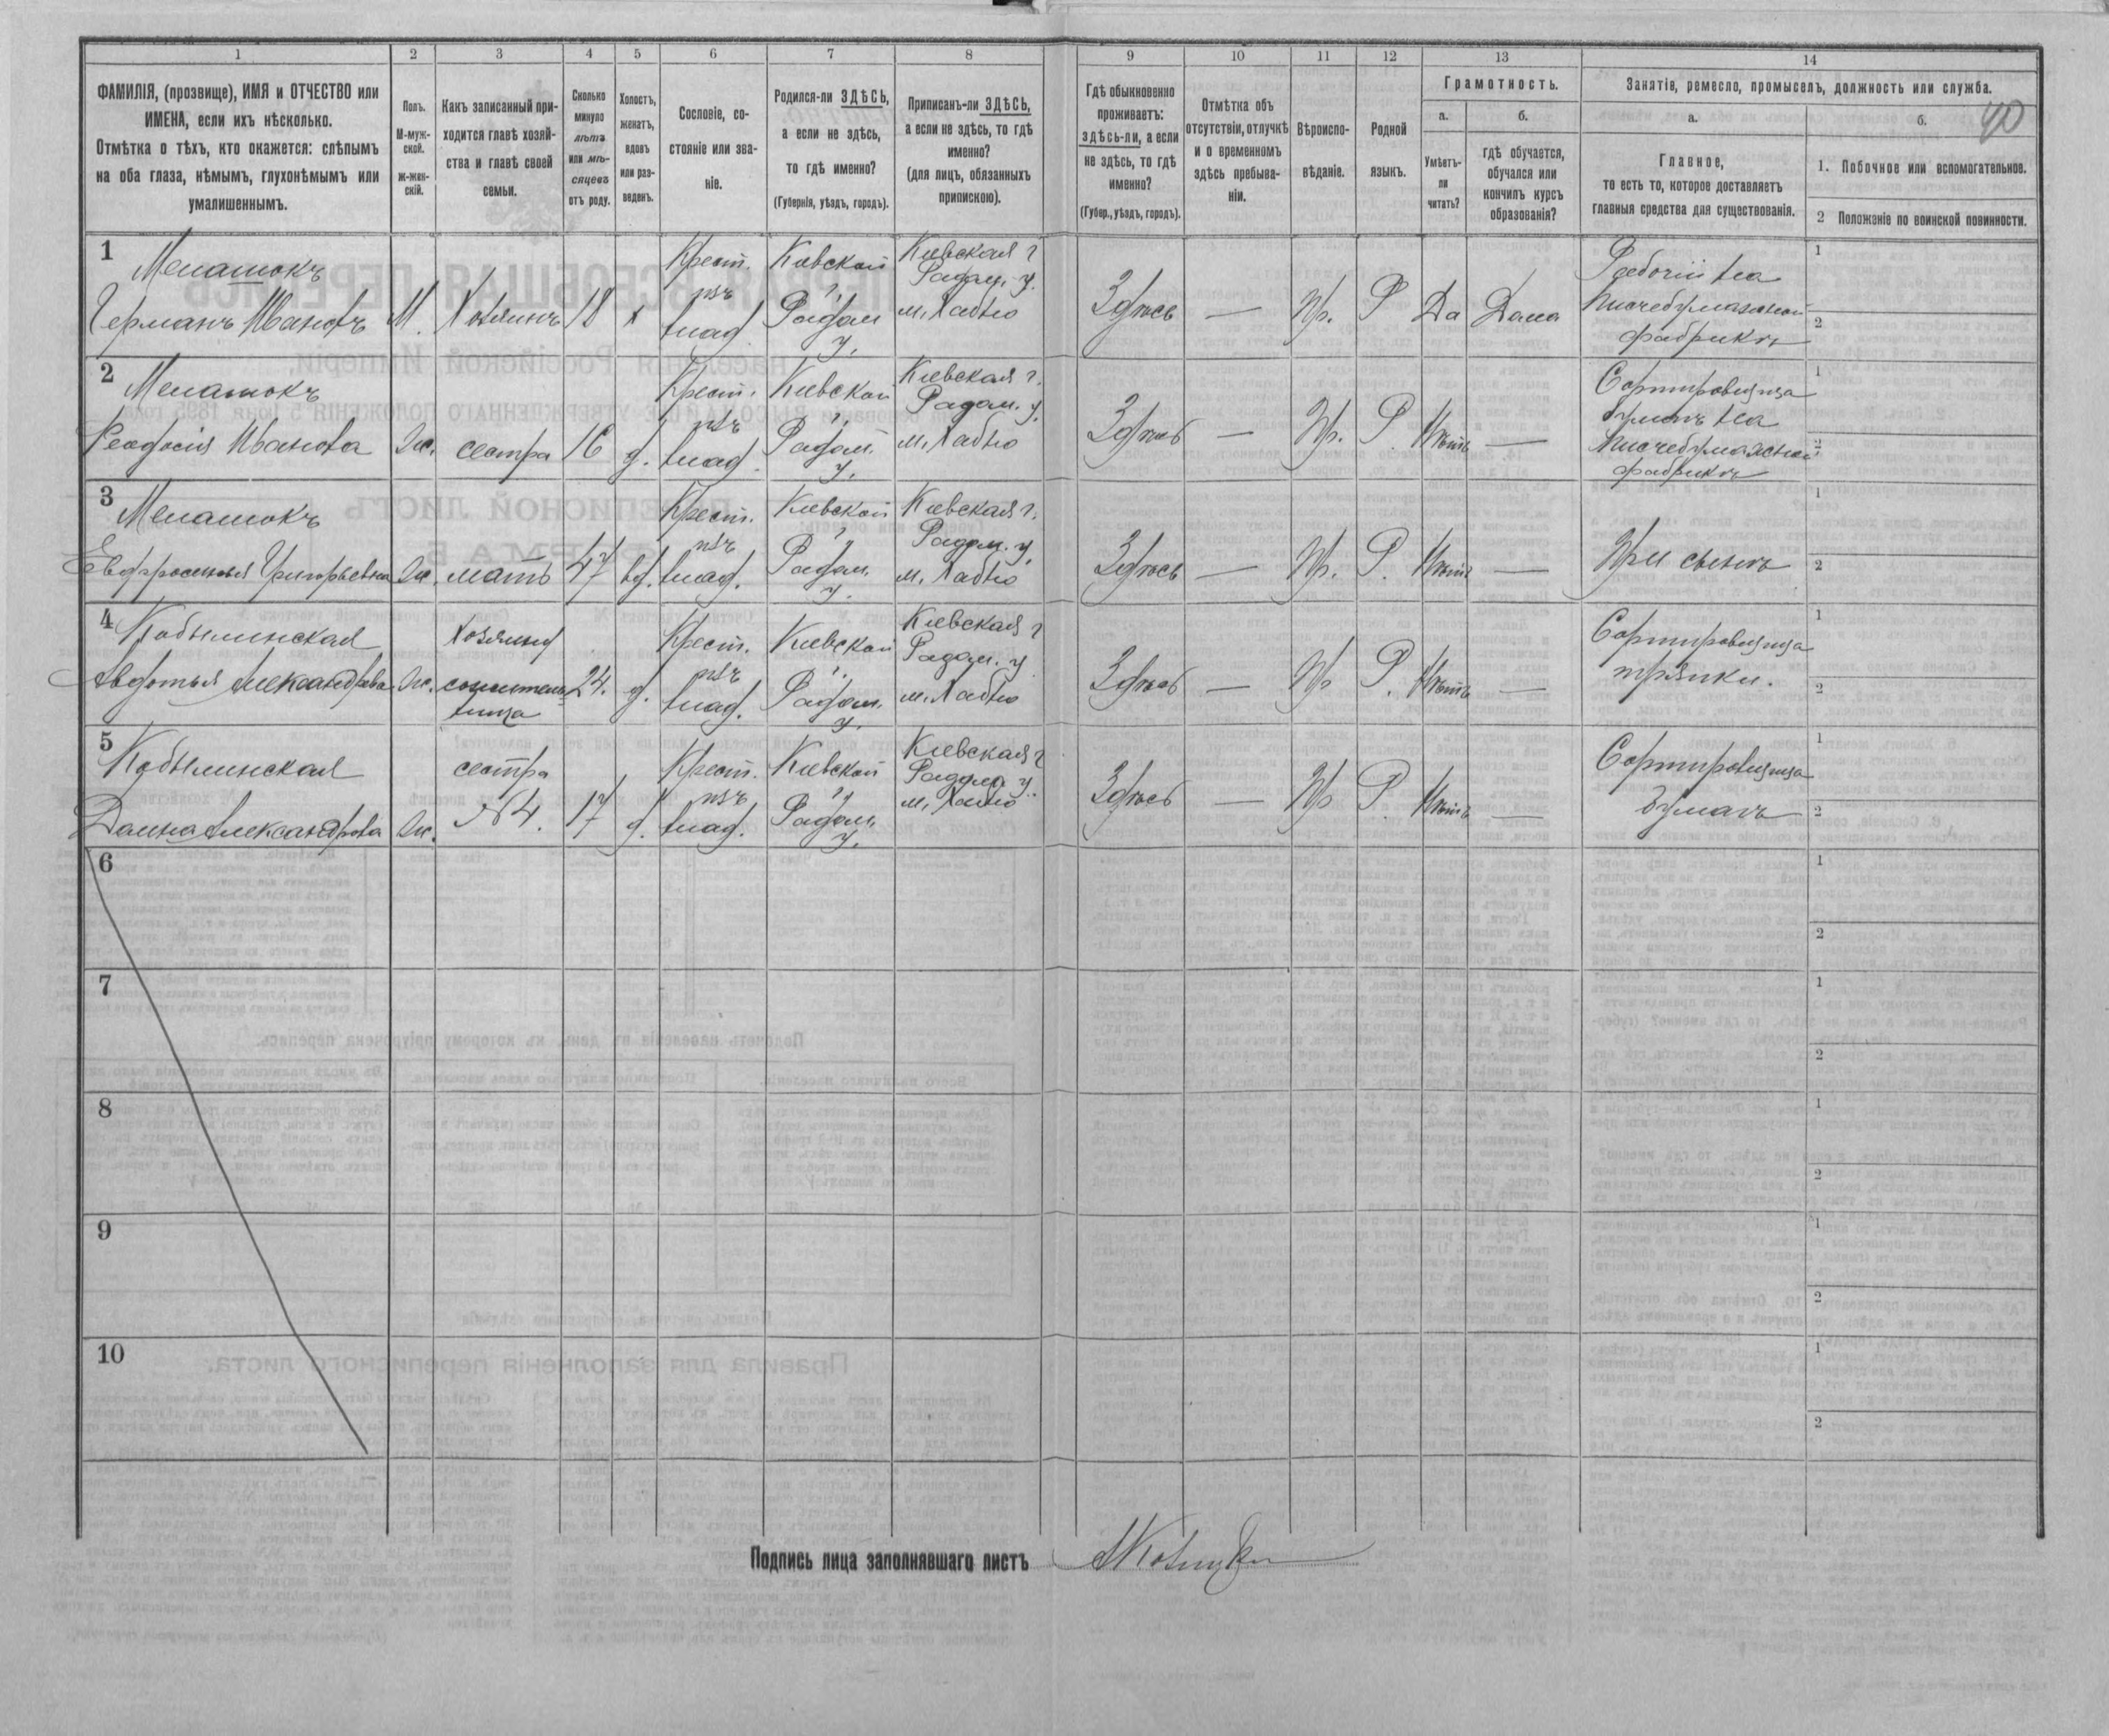 1 2 3 4 5 6 7 8 9 10 11 12 13 14
ФАМИЛІЯ, (прозвище), ИМЯ и ОТЧЕСТВО или
ИМЕНА, если ихъ нѣсколько.
Отмѣтка о тѣхъ, кто окажется: слѣпымъ
на оба глаза, нѣмымъ, глухонѣмымъ или
умалишеннымъ.
Полъ.
М-муж-
ской.
ж-жен-
скій.
Какъ записанный при-
ходится главѣ хозяй-
ства и главѣ своей
семьи.
Сколько
минуло
лѣтъ
или мѣ-
сяцевъ
отъ роду.
Холостъ,
женатъ,
вдовъ
или раз-
веденъ.
Сословіе, со-
стояніе или зва-
ніе.
Родился-ли ЗДѢСЬ,
а если не здѣсь,
то гдѣ именно?
(Губернія, уѣздъ, городъ).
Приписанъ-ли ЗДѢСЬ,
а если не здѣсь, то гдѣ
именно?
(для лицъ, обязанныхъ
припискою).
Гдѣ обыкновенно
проживаетъ:
здѣсь-ли, а если
не здѣсь, то гдѣ
именно?
(Губер., уѣздъ, городъ).
Отмѣтка объ
отсутствіи, отлучкѣ
и о временномъ
здѣсь пребыва-
ніи.
Вѣроиспо-
вѣданіе.
Родной
языкъ.
Грамотность.
а.
Умѣетъ-
ли
читать?
б.
гдѣ обучается,
обучался или
кончилъ курсъ
образованія?
Занятіе, ремесло, промыселъ, должность или служба.
а.
Главное,
то есть то, которое доставляетъ
главныя средства для существованія.
б.
40
1. Побочное или вспомогательное.
2 Положеніе по воинской повинности.
1
Германъ Ивановъ
М.
Хозяинъ
18
х
Крест.
изъ
влад.
Кіевской
г.
Радом
у.
Кіевская г
Радом. у.
м. Хабно
Здѣсь
—
Пр.
Р
Да
Дома
Рабочій на
писчебумажной
фабрикѣ
1
2
2
Феодосія Иванова
Ж.
сестра
16
д.
Крест.
изъ
влад.
Кіевской
г.
Радом.
у.
Кіевская г.
Радом. у.
м. Хабно
Здѣсь
—
Пр.
Р.
Нѣтъ
—
Сортировщица
бумагъ на
писчебумажной
фабрикѣ
1
2
3
Евфросинья Григорьевна
Ж.
мать
47
вд.
Крест.
изъ
влад.
Кіевской
г.
Радом.
у.
Кіевская г.
Радом. у.
м. Хабно
Здѣсь
—
Пр.
Р.
Нѣтъ
—
При сынѣ
1
2
4
Кобылинская
Авдотья Александрова
Ж.
24.
д.
Крест.
изъ
влад.
Кіевской
г.
Радом.
у.
Кіевская г
Радом. у
м. Хабно
Здѣсь
—
Пр
Р.
Нѣтъ
—
Сортировщица
тряпки.
1
2
5
Кобылинская
Домна Александрова
Ж.
сестра
№ 4.
17
д.
Крест.
изъ
влад.
Кіевской
г.
Радом.
у.
Кіевская г
Радом у.
м. Хабно
Здѣсь
—
Пр
Р
Нѣтъ
—
Сортировщица
бумагъ
1
2
6
1
2
7
1
2
8
1
2
9
1
2
10
1
2
Подпись лица заполнявшаго листъ